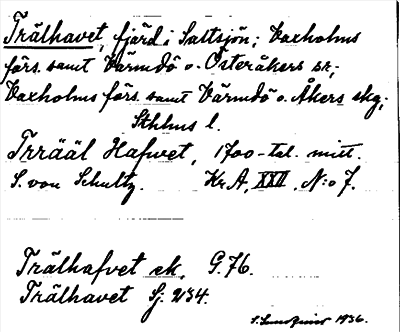 Trälhavet, fjärd i Saltsjön; Vaxholms
förs. samt Värmdö o. Österåkers sn;
Vaxholms förs. samt Värmdö o. Åkers skg;
Sthlms l.
Trrääl Hafwet, 1700-tal. mitt.
S. von Schultz. Kr.A, XXII, N:o 7.
Trälhafvet ek. G.76.
Trälhavet Sj. 234.
1936.